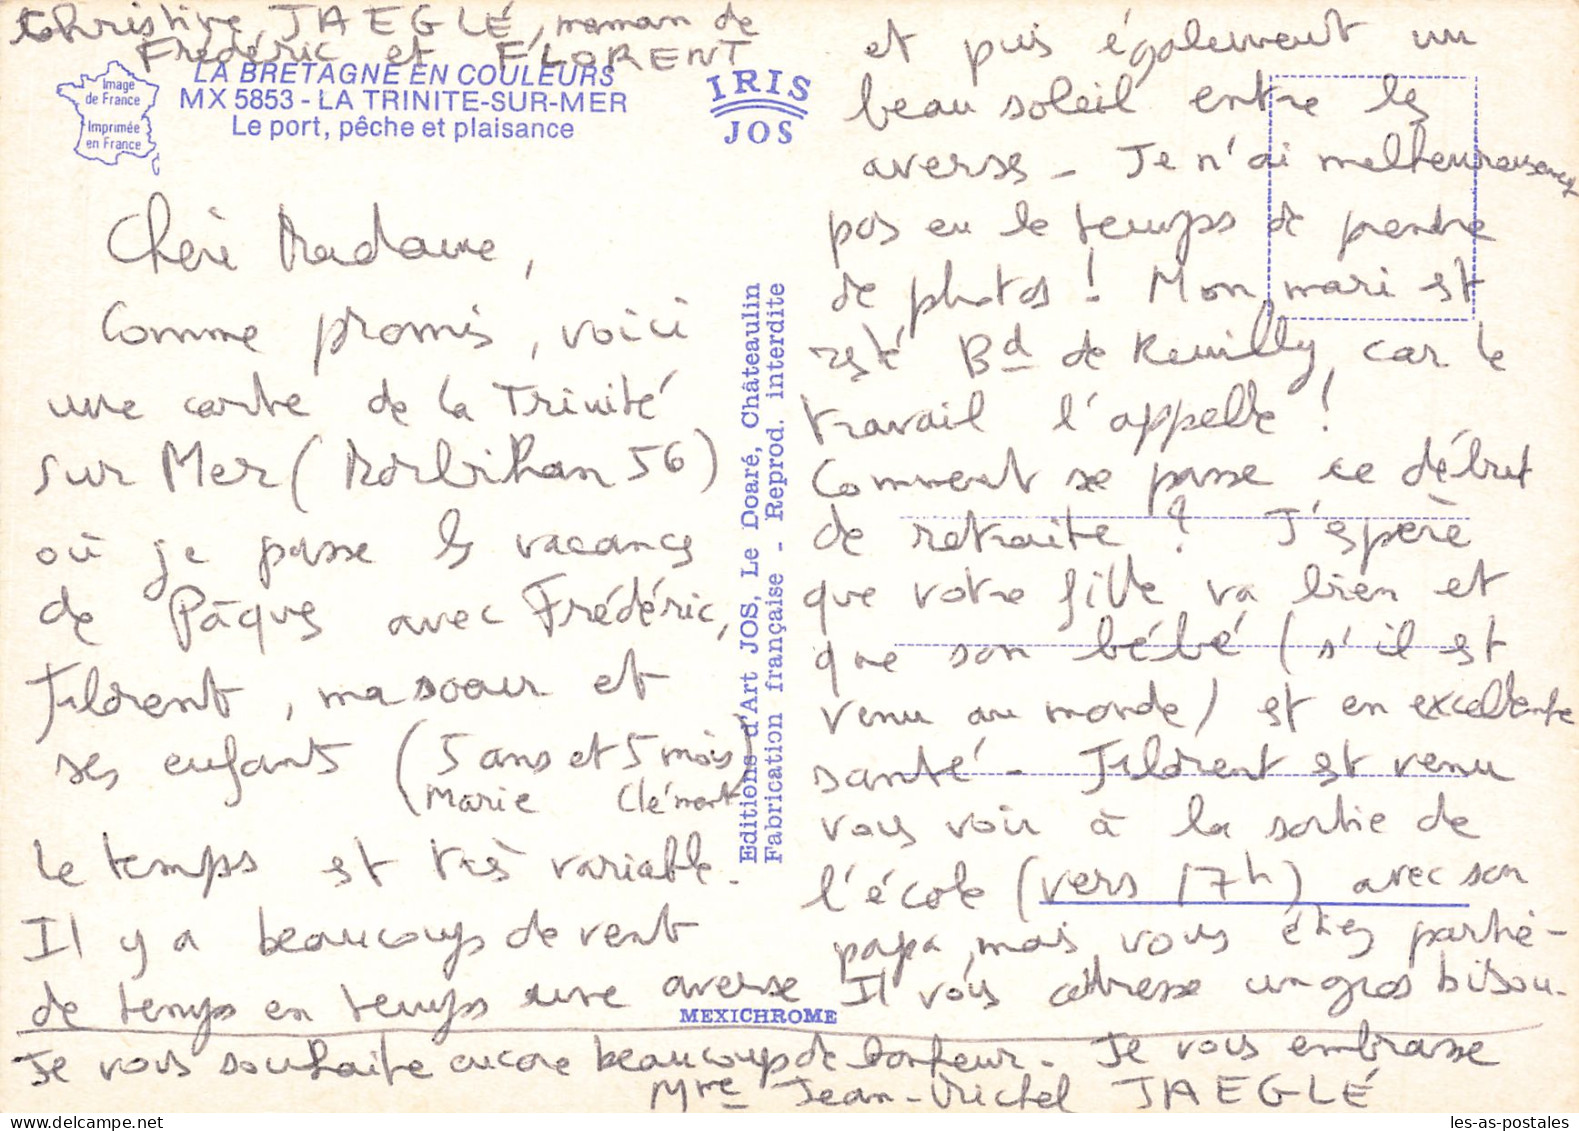 Christine JAEGLÉ, maman de
Frédéric et FLORENT
Image
de France
Imprimée
en France
LA BRETAGNE EN COULEURS
MX 5853 - LA TRINITE-SUR-MER
Le port, pêche et plaisance
IRIS
JOS
Chère Madame,
Comme promis, voici
une carte de la Trinité
sur Mer (Morbihan 56)
où je passe les vacances
de Pâques avec Frédéric,
Florent, ma soeur et
ses enfants (5 ans et 5 mois)
Marie Clément
Le temps est très variable.
Il y a beaucoup de vent
de temps en temps une averse
et puis également un
beau soleil entre les
averses - Je n'ai malheureusement
pas eu le temps de prendre
de photos ! Mon mari est
resté Bd de Reuilly, car le
travail l'appelle !
Comment se passe ce début
de retraite ? J'espère
que votre fille va bien et
que son bébé (s'il est
venu au monde) est en excellente
santé - Florent est venu
vous voir à la sortie de
l'école (vers 17h) avec son
papa, mais vous étiez partie -
Il vous adresse un gros bisou.
Je vous souhaite encore beaucoup de bonheur. Je vous embrasse
Mme Jean-Michel JAEGLÉ
Editions d'Art JOS, Le Doaré, Châteaulin
Fabrication française - Reprod. interdite
MEXICHROME
les-as-postales